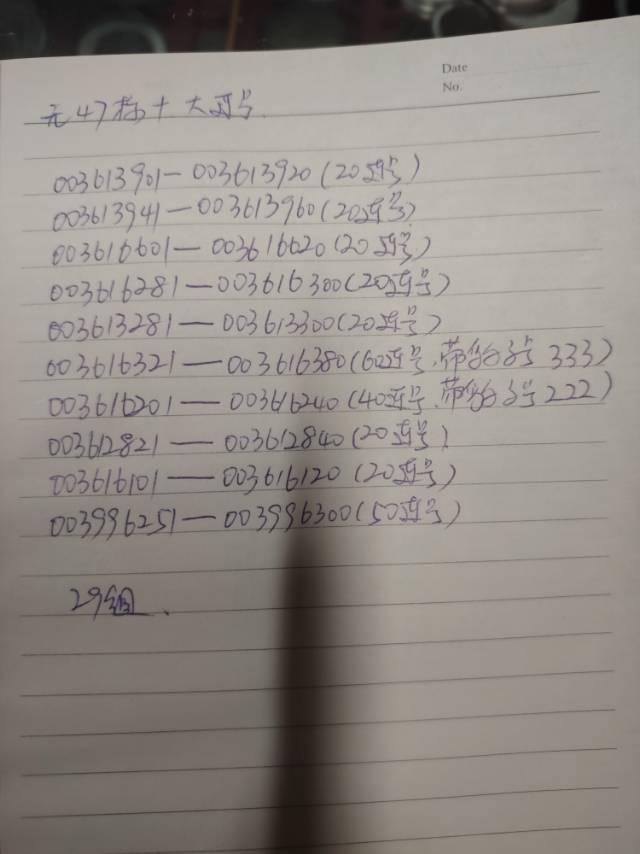 Date
No.
无47标十大连号
003613901—003613920(20连号)
003613941—003613960(20连号)
003616601—003616620(20连号)
003616281—003616300(20连号)
003613281—003613300(20连号)
003616321—003616380(60连号、带豹子号333)
003616201—003616240(40连号、带豹子号222)
003612821—003612840(20连号)
003616101—003616120(20连号)
003996251—003996300(50连号)
29组、